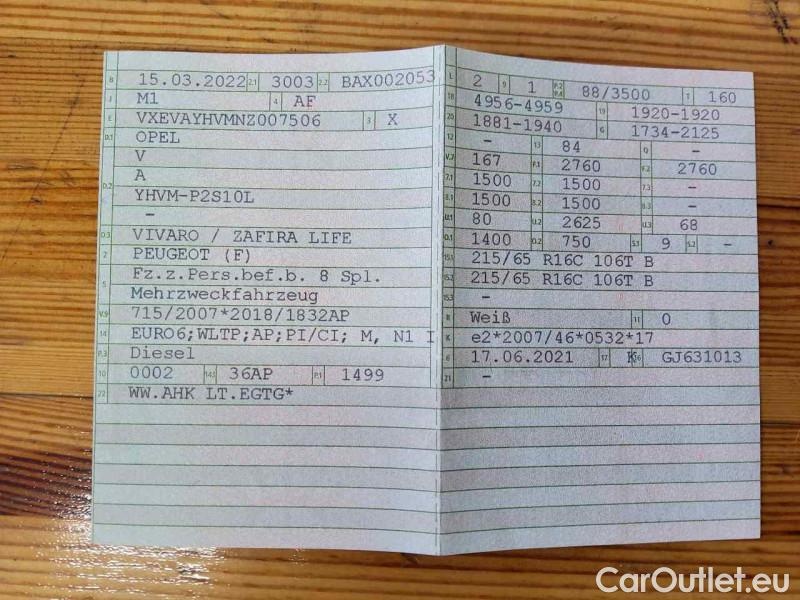 B 15.03.2022 2.1 3003 2.2 BAX002053
J M1 4 AF
E VXEVAYHVMNZ007506 3 X
D.1 OPEL
V
D.2 A
YHVM-P2S10L
-
D.3 VIVARO / ZAFIRA LIFE
2 PEUGEOT (F)
5 Fz.z.Pers.bef.b. 8 Spl.
Mehrzweckfahrzeug
V.9 715/2007*2018/1832AP
14 EURO6;WLTP;AP;PI/CI; M, N1 I
P.3 Diesel
10 0002 14.1 36AP P.1 1499
22 WW.AHK LT.EGTG*
L 2 9 1 P.2 P.4 88/3500 T 160
18 4956-4959 19 1920-1920
20 1881-1940 G 1734-2125
12 - 13 84 Q -
V.7 167 F.1 2760 F.2 2760
7.1 1500 7.2 1500 7.3 -
8.1 1500 8.2 1500 8.3 -
U.1 80 U.2 2625 U.3 68
O.1 1400 O.2 750 S.1 9 S.2 -
15.1 215/65 R16C 106T B
15.2 215/65 R16C 106T B
15.3 -
R Weiß 11 0
K e2*2007/46*0532*17
6 17.06.2021 17 K 16 GJ631013
21 -
CarOutlet.eu